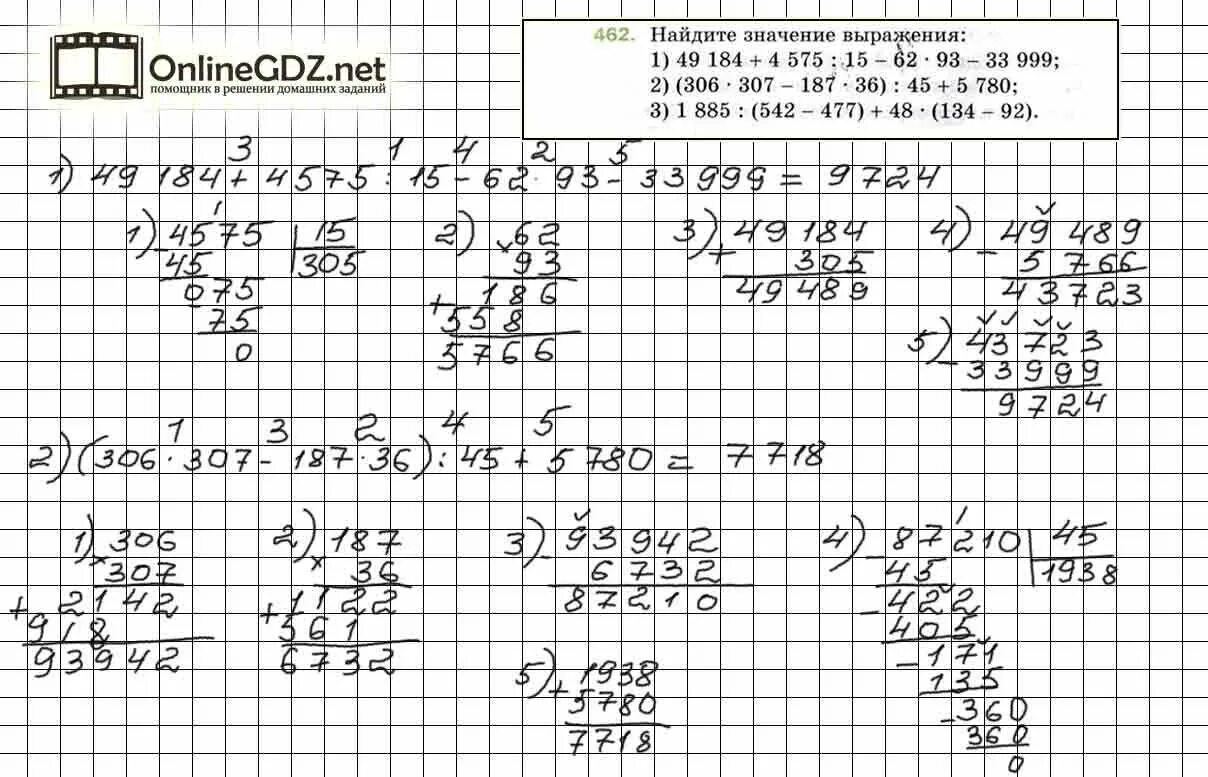 OnlineGDZ.net
помощник в решении домашних заданий
462. Найдите значение выражения:
1) 49 184 + 4 575 : 15 – 62 · 93 – 33 999;
2) (306 · 307 – 187 · 36) : 45 + 5 780;
3) 1 885 : (542 – 477) + 48 · (134 – 92).
3 1 4 2 5
1) 49 184 + 4575 : 15 - 62 · 93 - 33 999 = 9724
1) 4575 | 15
- 45 | 305
075
75
0
2) 62
× 93
+ 186
558
5766
3) 49 184
+ 305
49 489
4) 49 489
- 5 766
43723
5) 43 723
- 33 999
9724
1 3 2 4 5
2) (306 · 307 - 187 · 36) : 45 + 5 780 = 7718
1) 306
× 307
+ 2142
918
93942
2) 187
× 36
+ 1122
561
6732
3) 93942
- 6732
87210
4) 87210 | 45
- 45 | 1938
- 422
405
- 171
135
- 360
360
0
5) 1938
+ 5780
7718